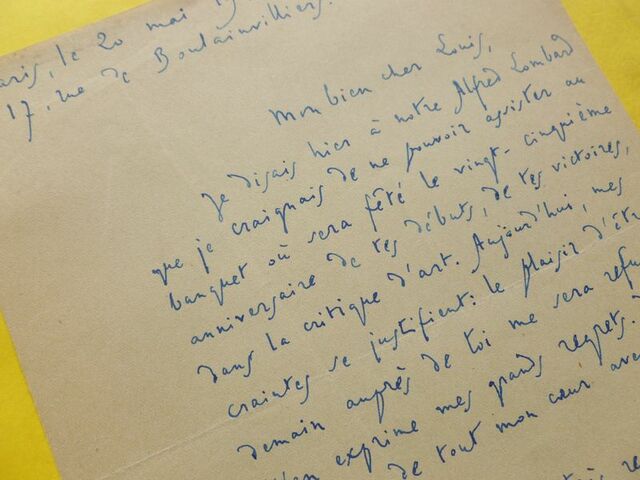 aris, le 20 mai 19
17, rue de Boulainvilliers.
Mon bien cher Louis,
Je disais hier à notre Alfred Lombard
que je craignais de ne pouvoir assister au
banquet où sera fêté le vingt-cinquième
anniversaire de tes débuts, de tes victoires,
dans la critique d'art. Aujourd'hui, mes
craintes se justifient: le plaisir d'êtr
demain auprès de toi me sera refu
t'en exprime mes grands regrets.
de tout mon cœur avec